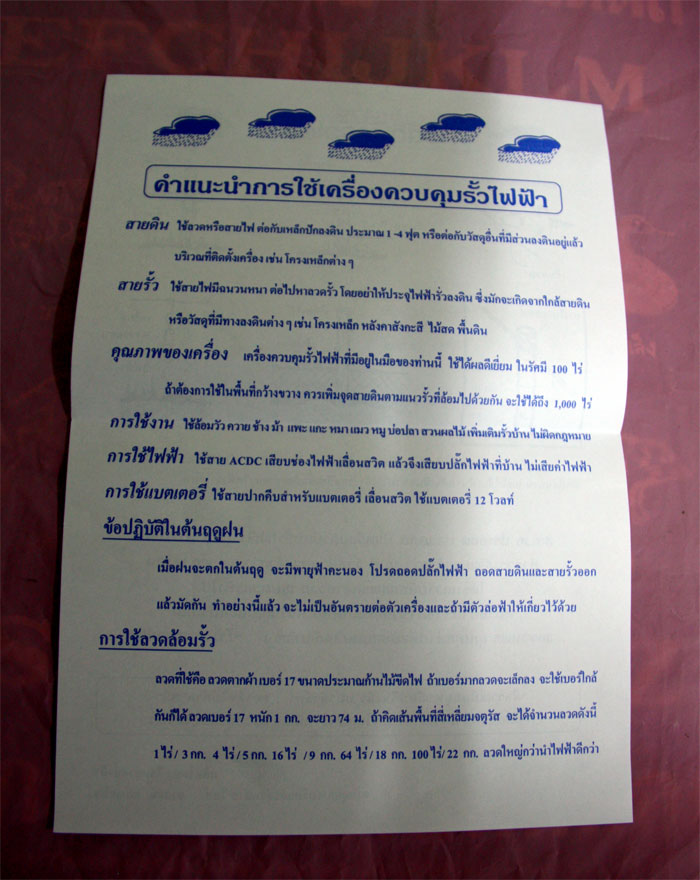 EFGHIJKLM
คำแนะนำการใช้เครื่องควบคุมรั้วไฟฟ้า
สายดิน ใช้ลวดหรือสายไฟ ต่อกับเหล็กปักลงดิน ประมาณ 1 -4 ฟุต หรือต่อกับวัสดุอื่นที่มีส่วนลงดินอยู่แล้ว
บริเวณที่ติดตั้งเครื่อง เช่น โครงเหล็กต่าง ๆ
สายรั้ว ใช้สายไฟมีฉนวนหนา ต่อไปหาลวดรั้ว โดยอย่าให้ประจุไฟฟ้ารั่วลงดิน ซึ่งมักจะเกิดจากใกล้สายดิน
หรือวัสดุที่มีทางลงดินต่าง ๆ เช่น โครงเหล็ก หลังคาสังกะสี ไม้สด พื้นดิน
คุณภาพของเครื่อง เครื่องควบคุมรั้วไฟฟ้าที่มีอยู่ในมือของท่านนี้ ใช้ได้ผลดีเยี่ยม ในรัศมี 100 ไร่
ถ้าต้องการใช้ในพื้นที่กว้างขวาง ควรเพิ่มจุดสายดินตามแนวรั้วที่ล้อมไปด้วยกัน จะใช้ได้ถึง 1,000 ไร่
การใช้งาน ใช้ล้อมวัว ควาย ช้าง ม้า แพะ แกะ หมา แมว หมู บ่อปลา สวนผลไม้ เพิ่มเติมรั้วบ้าน ไม่ผิดกฎหมาย
การใช้ไฟฟ้า ใช้สาย ACDC เสียบช่องไฟฟ้าเลื่อนสวิต แล้วจึงเสียบปลั๊กไฟฟ้าที่บ้าน ไม่เสียค่าไฟฟ้า
การใช้แบตเตอรี่ ใช้สายปากคีบสำหรับแบตเตอรี่ เลื่อนสวิต ใช้แบตเตอรี่ 12 โวลท์
ข้อปฏิบัติในต้นฤดูฝน
เมื่อฝนจะตกในต้นฤดู จะมีพายุฟ้าคะนอง โปรดถอดปลั๊กไฟฟ้า ถอดสายดินและสายรั้วออก
แล้วมัดกัน ทำอย่างนี้แล้ว จะไม่เป็นอันตรายต่อตัวเครื่องและถ้ามีตัวล่อฟ้าให้เกี่ยวไว้ด้วย
การใช้ลวดล้อมรั้ว
ลวดที่ใช้คือ ลวดตากผ้า เบอร์ 17 ขนาดประมาณก้านไม้ขีดไฟ ถ้าเบอร์มากลวดจะเล็กลง จะใช้เบอร์ใกล้
กันก็ได้ ลวดเบอร์ 17 หนัก 1 กก. จะยาว 74 ม. ถ้าคิดเส้นพื้นที่สี่เหลี่ยมจตุรัส จะได้จำนวนลวดดังนี้
1 ไร่ / 3 กก. 4 ไร่ / 5 กก. 16 ไร่ / 9 กก. 64 ไร่ / 18 กก. 100 ไร่ / 22 กก. ลวดใหญ่กว่านำไฟฟ้าดีกว่า